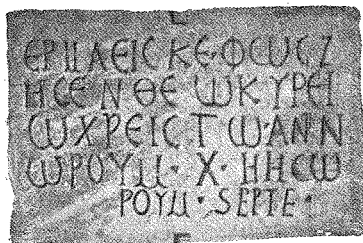 ΕΡΜΑΕΙϹΚΕ·ΦΩϹΖ
ΗϹΕΝΘΕΩΚΥΡΕΙ
ΩΧΡΕΙϹΤΩ·ΑΝΝ
ΩΡΟΥΜ·Χ·ΗΗϹΩ
ΡΟΥΜ·SEPTE·